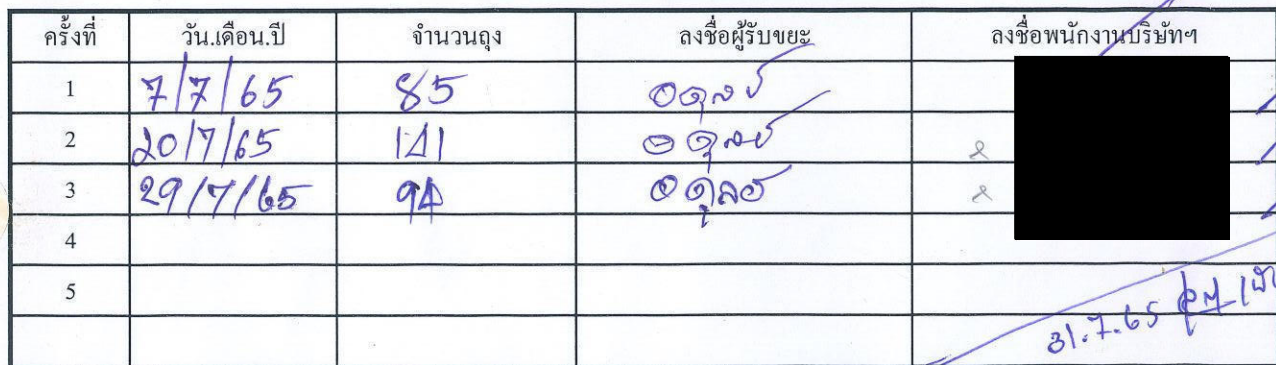 ครั้งที่ วัน.เดือน.ปี จำนวนถุง ลงชื่อผู้รับขยะ ลงชื่อพนักงานบริษัทฯ
1 7/7/65 85
2 20/7/65 141
3 29/7/65 94
4
5
31.7.65